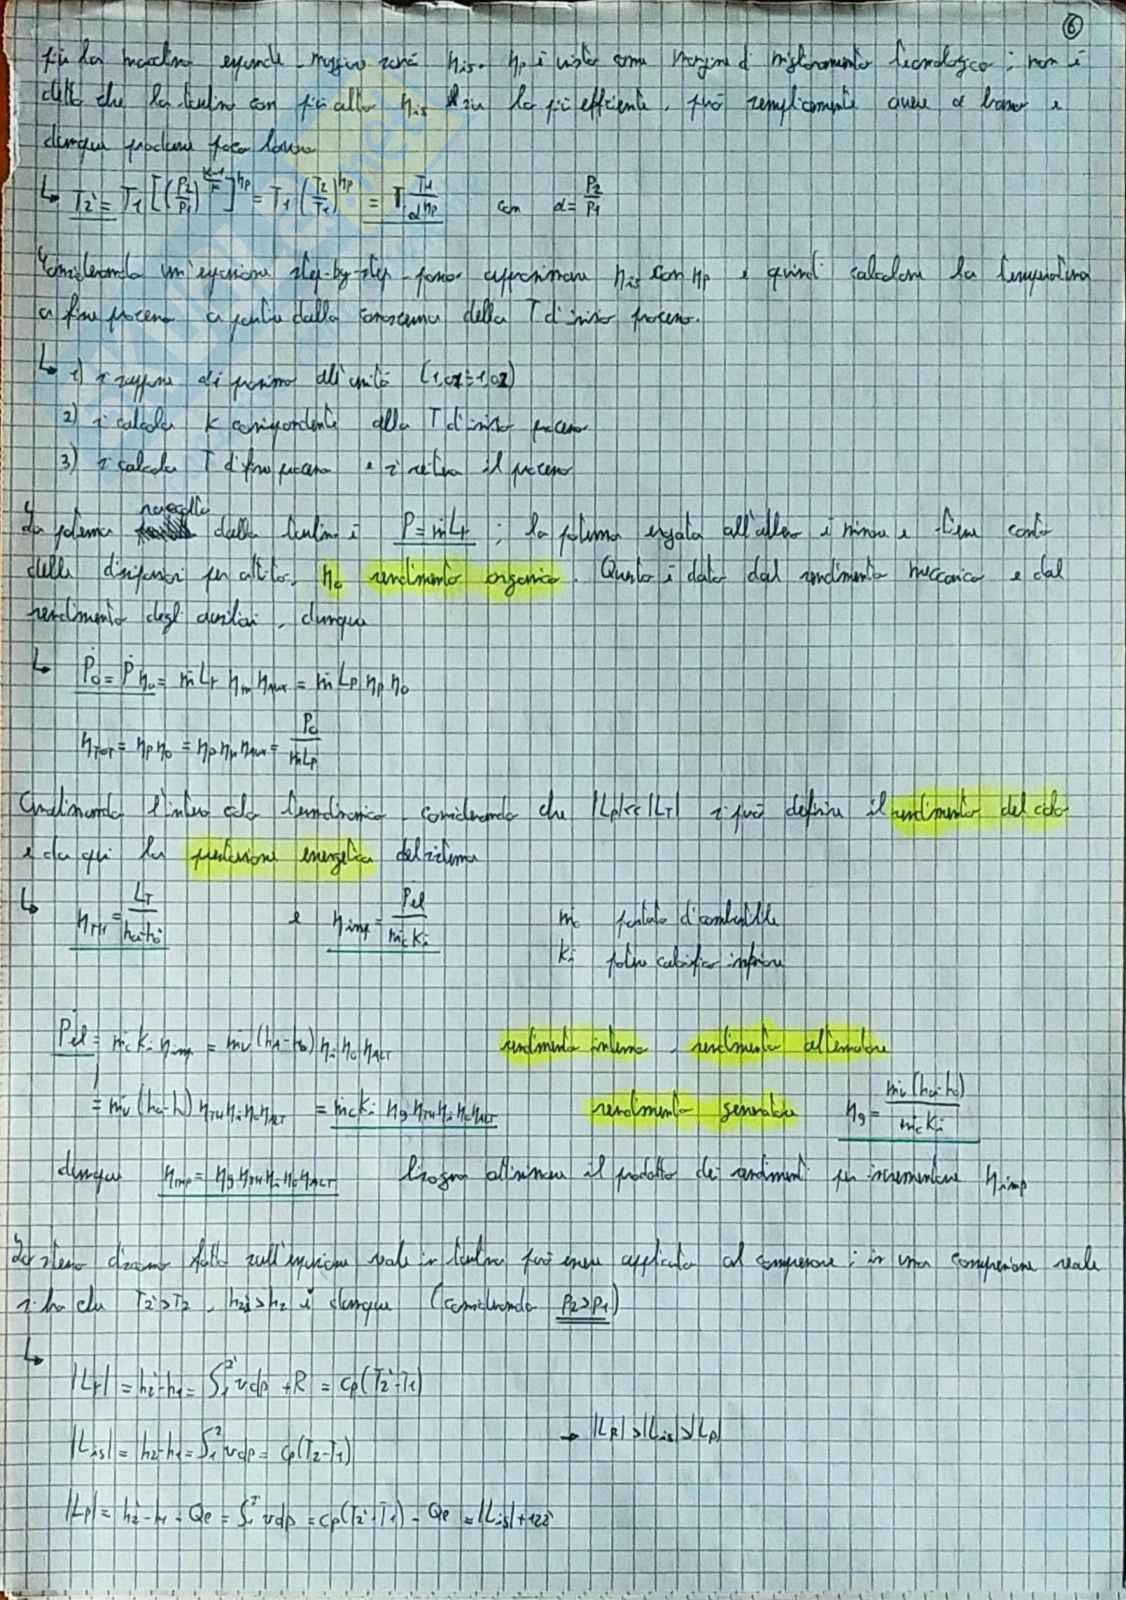 6
più la macchina espande, maggiore sarà ηis. ηp è visto come margine di miglioramento tecnologico; non è
detto che la turbina con più alto ηis sia la più efficiente, può semplicemente avere α basso e
dunque produrre poco lavoro
↳ T2' = T1 [(P2/P1)^(k-1/k)]^ηp = T1 (T2/T1)^ηp = T1/α^ηp con α = P2/P1
Considerando un'espansione step-by-step, posso approssimare ηis con ηp e quindi calcolare la temperatura
a fine processo a partire dalla conoscenza della T d'inizio processo.
↳ 1) si suppone α prossimo all'unità (1,01÷1,02)
2) si calcola k corrispondente alla T d'inizio processo
3) si calcola T di fine processo e si reitera il processo
La potenza raccolta dalla turbina è P = ṁLT ; la potenza erogata all'albero è minore e tiene conto
delle dispersioni per attrito, ηo rendimento organico. Questo è dato dal rendimento meccanico e dal
rendimento degli ausiliari, dunque
↳ Po = P ηo = ṁ LT ηm ηAUX = ṁ LP ηP ηo
ηTOT = ηP ηo = ηP ηm ηAUX = Po/ṁLP
Analizzando l'intero ciclo termodinamico, considerando che |LP|<<|LT| si può definire il rendimento del ciclo
e da qui la prestazione energetica del sistema
↳ ηTH = LT/hA-ho e ηimp = Pel/ṁc Ki ṁc portata di combustibile
Ki potere calorifico inferiore
Pel = ṁc Ki ηimp = ṁv (hA-ho) ηi ηo ηALT rendimento interno, rendimento alternatore
= ṁv (hA-h) ηTH ηi ηo ηALT = ṁc Ki ηg ηTH ηi ηo ηALT rendimento generatore ηg = ṁv (hA-ho)/ṁc Ki
dunque ηimp = ηg ηTH ηi ηo ηALT bisogna ottimizzare il prodotto dei rendimenti per incrementare ηimp
Lo stesso discorso fatto sull'espansione reale in turbina può essere applicato al compressore; in una compressione reale
si ha che T2'>T2, h2'>h2 e dunque (considerando p2>p1)
↳ |Lr| = h2'-h1 = ∫1^2' vdp + R = cp(T2'-T1)
|Lis| = h2-h1 = ∫1^2 vdp = cp(T2-T1) → |LR|>|Lis|>|LP|
|LP| = h2'-h1 - Qe = ∫1^2' vdp = cp(T2'-T1) - Qe = |Lis|+122'